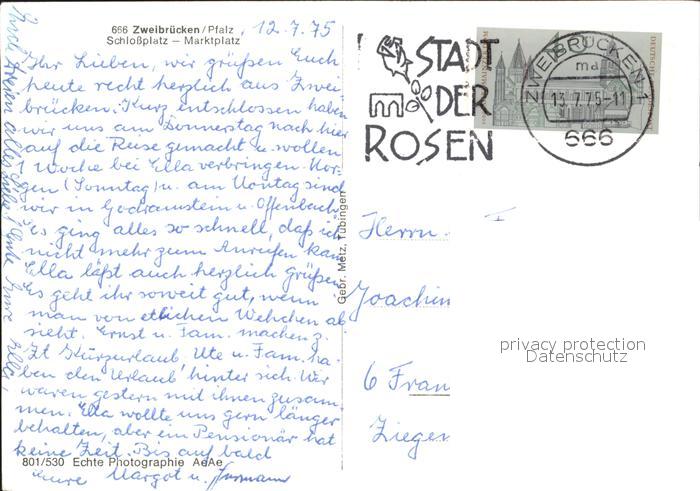 666 Zweibrücken/Pfalz
Schloßplatz – Marktplatz
12.7.75
Ihr Lieben, wir grüßen Euch
heute recht herzlich aus Zwei-
brücken. Kurz entschlossen haben
wir uns am Donnerstag nach hier
auf die Reise gemacht u. wollen
1 Woche bei Ella verbringen. Mor-
gen (Sonntag) u. am Montag sind
wir in Godramstein u. Offenbach.
Es ging alles so schnell, daß ich
nicht mehr zum Anrufen kam.
Ella läßt auch herzlich grüßen.
Es geht ihr soweit gut, wenn
man von etlichen Wehchen ab-
sieht. Ernst u. Fam. machen z.
Zt. Kurzurlaub. Ute u. Fam. ha-
ben den Urlaub hinter sich. Wir
waren gestern mit ihnen zusam-
men. Ella wollte uns gern länger
behalten, aber ein Pensionär hat
keine Zeit. Bis auf bald
Eure Margot u. Hermann
801/530 Echte Photographie AeAe
alles Liebe! Eure
Gebr. Metz, Tübingen
STADT
DER
ROSEN
ZWEIBRÜCKEN 1
ma
13.7.75-11
666
Herrn
Joachim
6 Fran
Ziegen
privacy protection
Datenschutz